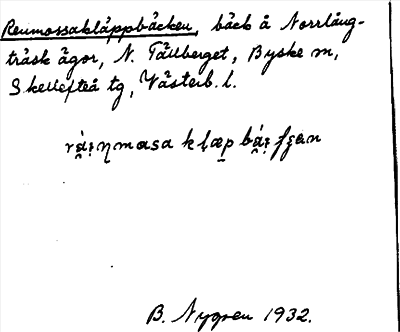 Renmossakläppbäcken, bäck å Norrlång-
träsk ägor, N. Tällberget, Byske sn,
Skellefteå tg, Västerb. l.
B. Nygren 1932.